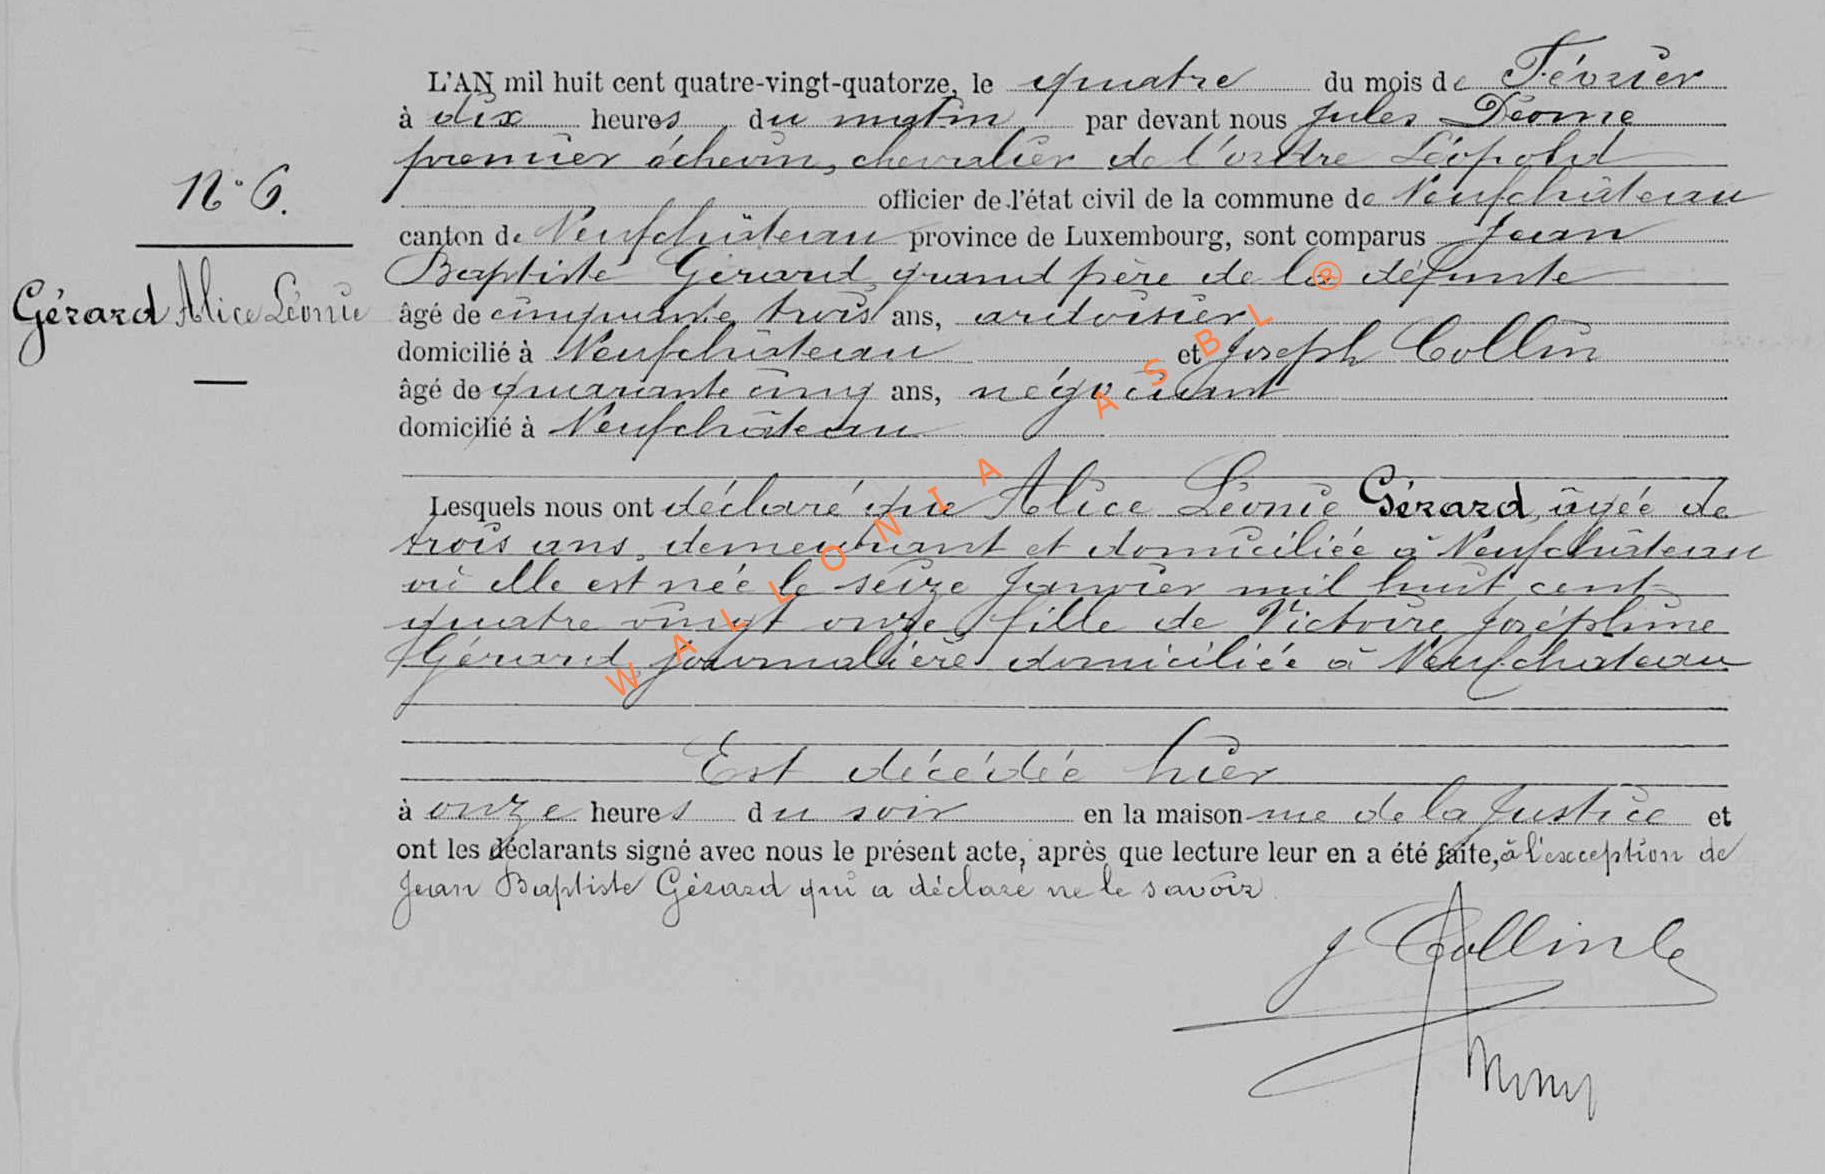 L'AN mil huit cent quatre-vingt-quatorze, le quatre du mois de Février
à dix heures du matin par devant nous Jules
premier échevin, chevalier de l'ordre Léopold
N° 6.
officier de l'état civil de la commune de Neufchâteau
canton de Neufchâteau province de Luxembourg, sont comparus Jean
Baptiste Gérard, grand père de la défunte
Gérard Alice Léonie
âgé de cinquante trois ans, ardoisier
domicilié à Neufchâteau et Joseph Collin
âgé de quarante cinq ans, négociant
domicilié à Neufchâteau
Lesquels nous ont déclaré que Alice Léonie Gérard, âgée de
trois ans, demeurant et domiciliée à Neufchâteau
où elle est née le seize Janvier mil huit cent
quatre vingt onze, fille de Victoire Joséphine
Gérard, journalière domiciliée à Neufchateau
Est décédée hier
à onze heures du soir en la maison rue de la Justice et
ont les déclarants signé avec nous le présent acte, après que lecture leur en a été faite, à l'exception de
Jean Baptiste Gérard qui a déclaré ne le savoir.
J Collin
WALLONIA ASBL ®